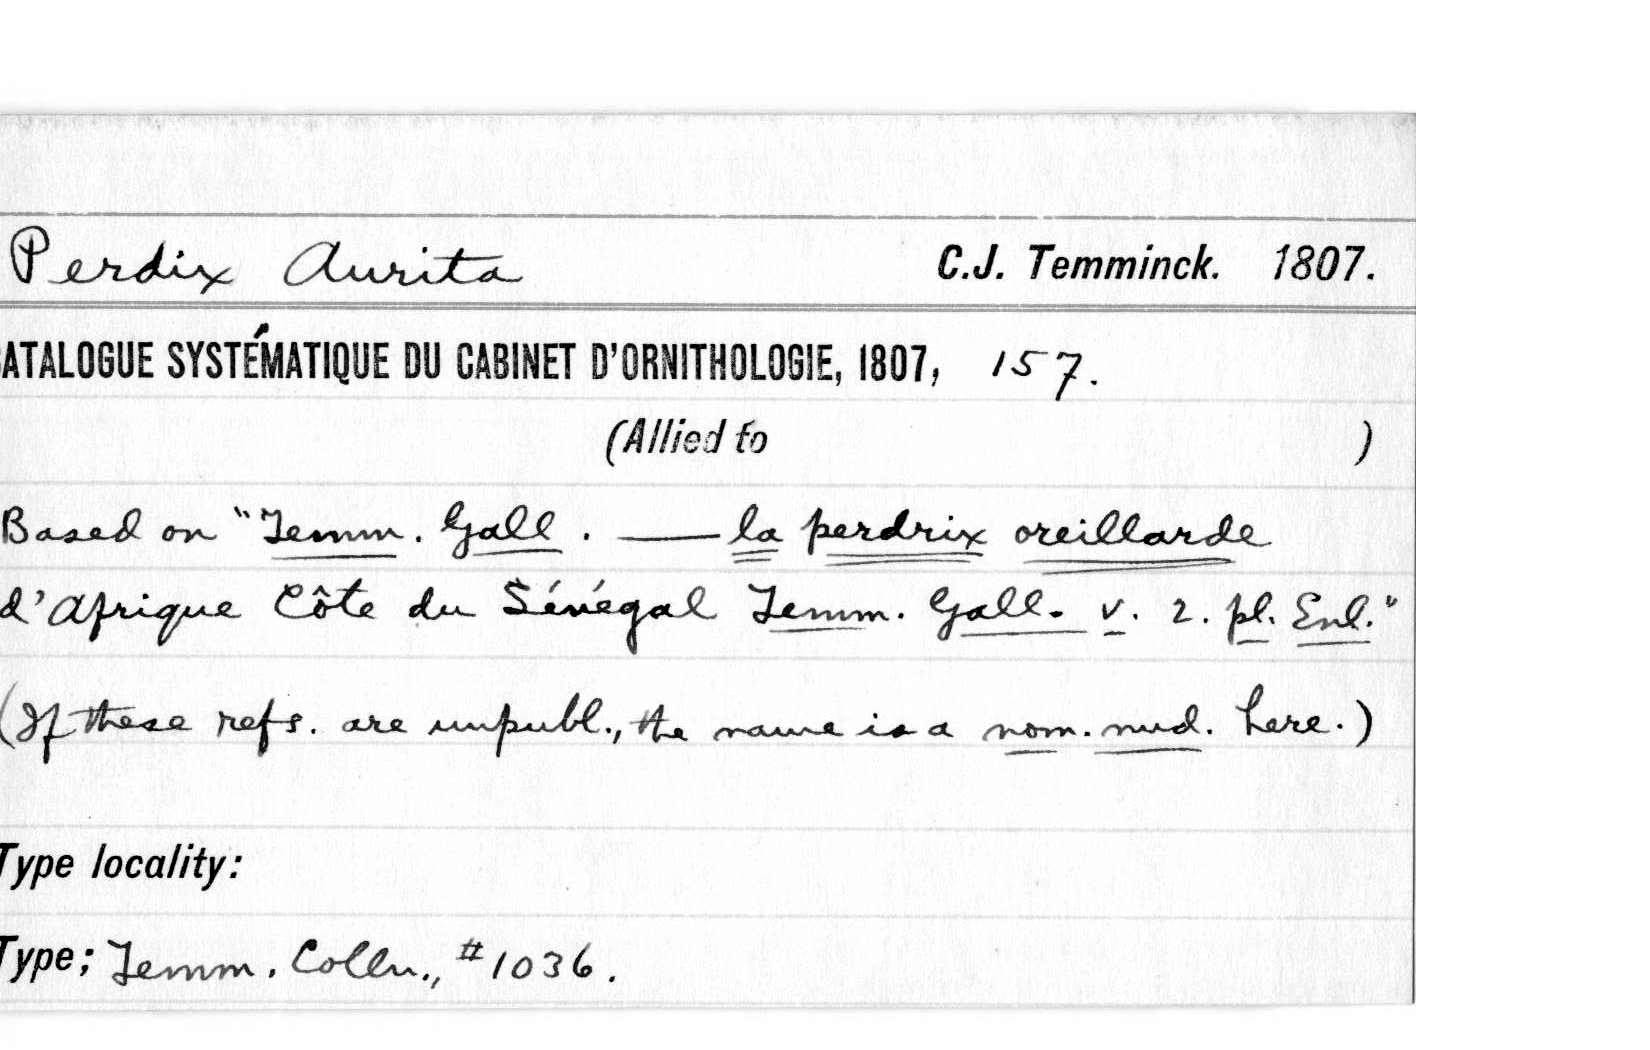 Perdix Aurita C.J. Temminck. 1807.
ATALOGUE SYSTÉMATIQUE DU CABINET D'ORNITHOLOGIE, 1807, 157.
(Allied to )
Based on "Temm. Gall. — la perdrix oreillarde
d'Afrique Côte du Sénégal Temm. Gall. v. 2. pl. Enl."
(If these refs. are unpubl., the name is a nom. nud. here.)
Type locality:
Type; Temm. Colln., #1036.